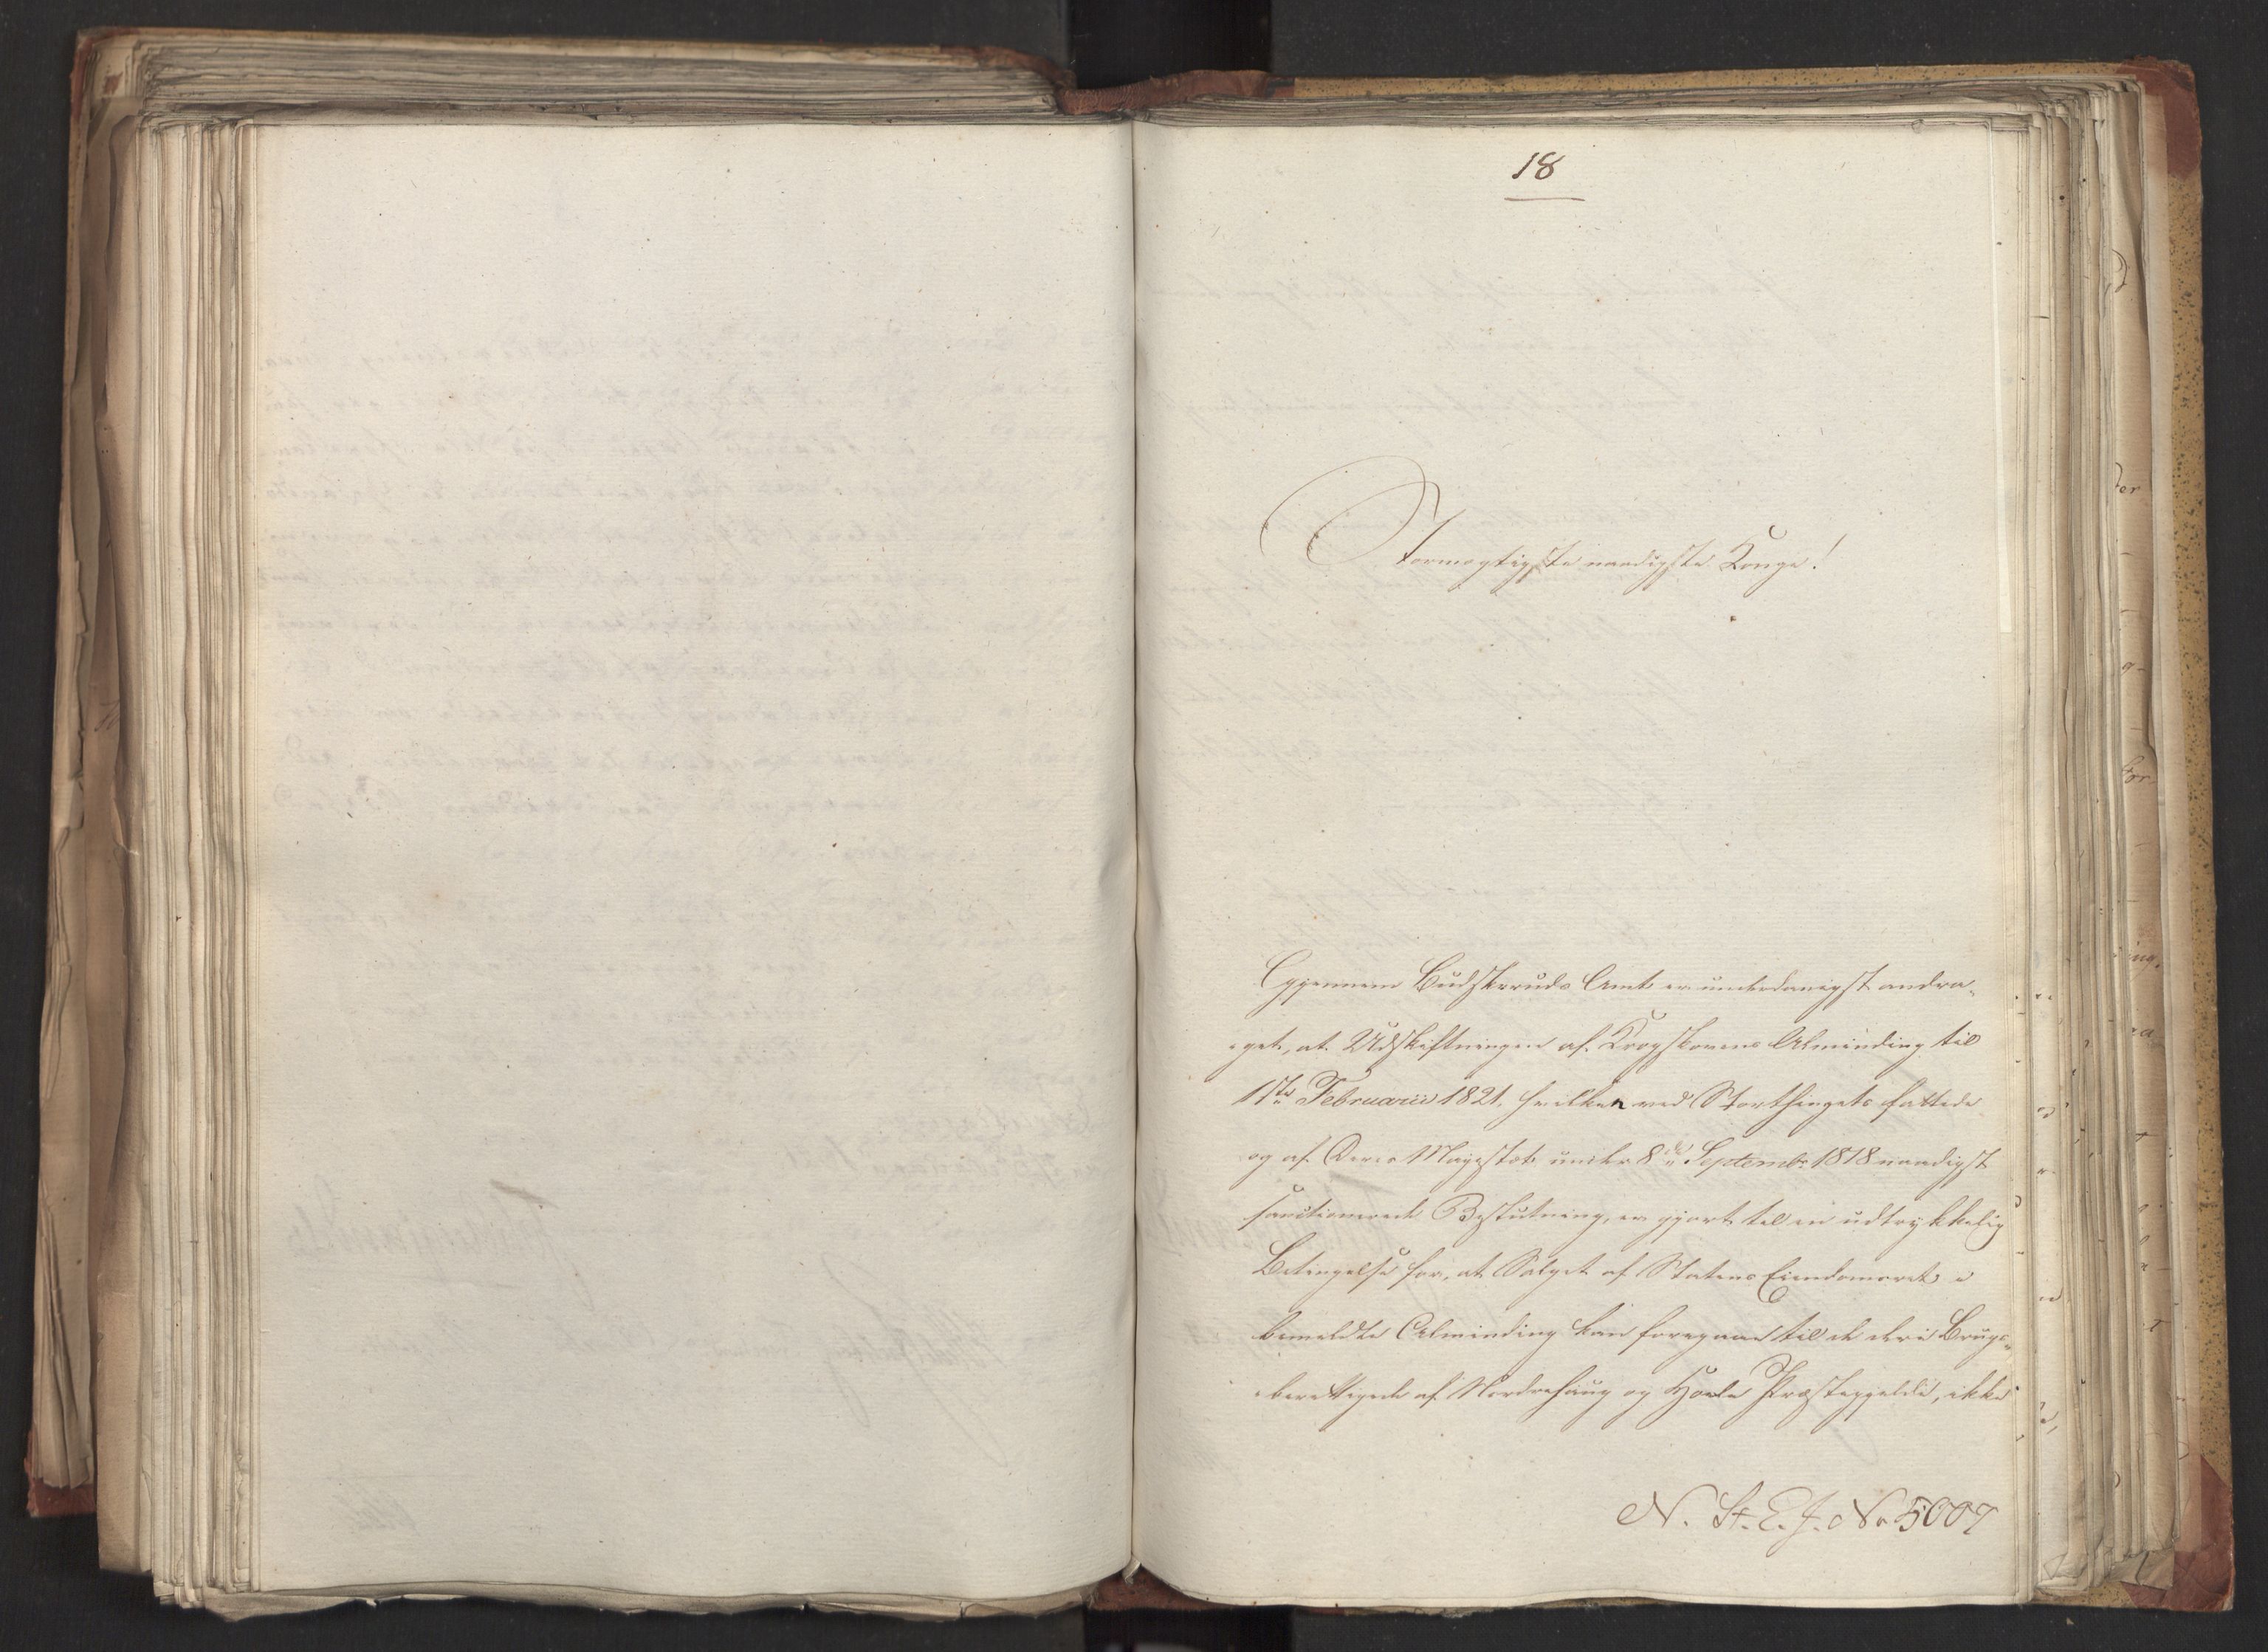 18
Stormægtigste naadigste Konge!
Igjennem Budskeruds Amt er underdanigst andra-
get, at Udskiftningen af Krogskovens Alminding til
1ste Februarii 1821, hvilken ved Storthingets fattede
og af Deres Majestæt under 8de Septembr 1818 naadigst
sanctionerede Beslutning, er gjort til en udtrykkelig
Betingelse for, at Salget af Statens Eiendomsret i
bemeldte Alminding kan foregaae til de deri Brugs-
berettigede af Norderhoug og Hole Præstegjelde, ikke
N. St. E. J. No 5007